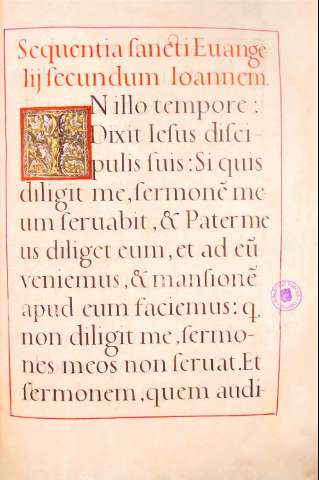 Sequentia sancti Evange
lij secundum Ioannem.
IN illo tempore:
Dixit Iesus disci-
pulis suis: Si quis
diligit me, sermonē me
um seruabit, & Pater me
us diliget eum, et ad eū
veniemus, & mansionē
apud eum faciemus: q̨
non diligit me, sermo-
nes meos non seruat. Et
sermonem, quem audi-